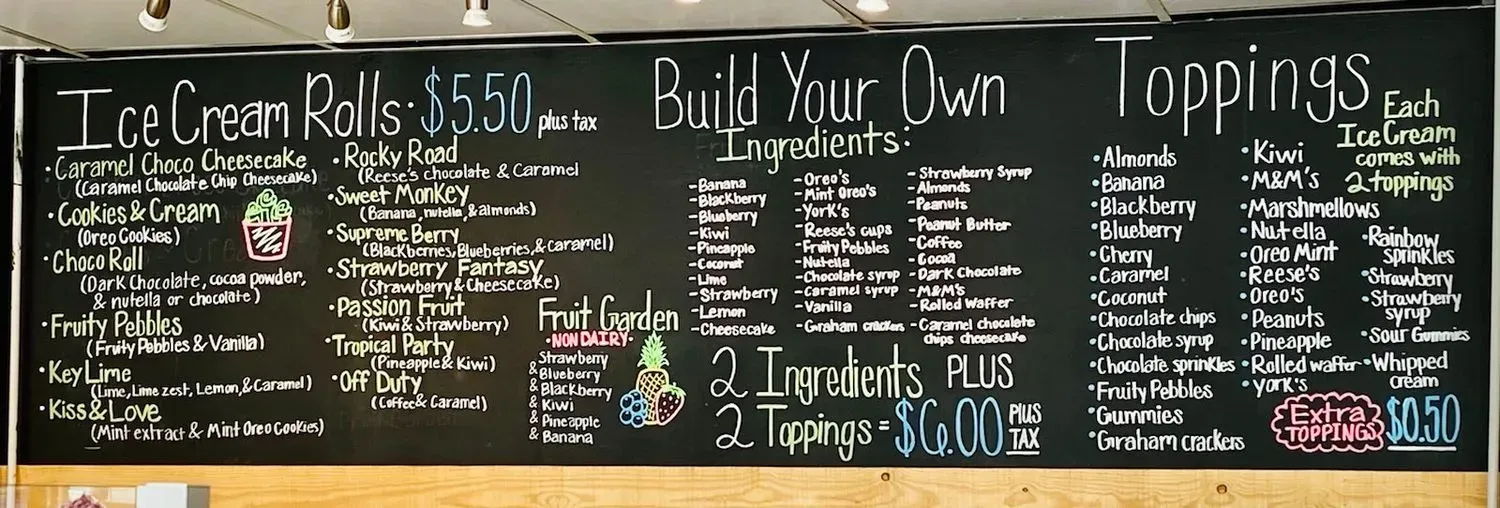 Ice Cream Rolls: $5.50 plus tax
• Caramel Choco Cheesecake
(Caramel Chocolate Chip Cheesecake)
• Cookies & Cream
(Oreo Cookies)
• Choco Roll
(Dark Chocolate, cocoa powder,
& nutella or chocolate)
• Fruity Pebbles
(Fruity Pebbles & Vanilla)
• Key Lime
(Lime, Lime zest, Lemon, & Caramel)
• Kiss & Love
(Mint extract & Mint Oreo Cookies)
• Rocky Road
(Reese's chocolate & Caramel
• Sweet Monkey
(Banana, nutella, & almonds)
• Supreme Berry
(BlackBerries, Blueberries, & caramel)
• Strawberry Fantasy
(Strawberry & Cheesecake)
• Passion Fruit
(Kiwi & Strawberry)
• Tropical Party
(Pineapple & Kiwi)
• Off Duty
(Coffee & Caramel)
Fruit Garden
• NON DAIRY •
Strawberry
& Blueberry
& Blackberry
& Kiwi
& Pineapple
& Banana
Build Your Own
Ingredients:
- Banana
- Blackberry
- Blueberry
- Kiwi
- Pineapple
- Coconut
- Lime
- Strawberry
- Lemon
- Cheesecake
- Oreo's
- Mint Oreo's
- York's
- Reese's cups
- Fruity Pebbles
- Nutella
- Chocolate syrup
- Caramel syrup
- Vanilla
- Graham crackers
- Strawberry Syrup
- Almonds
- Peanuts
- Peanut Butter
- Coffee
- Cocoa
- Dark Chocolate
- M&M's
- Rolled Waffer
- Caramel chocolate
chips cheesecake
2 Ingredients PLUS
2 Toppings = $6.00 PLUS
TAX
Toppings
Each
Ice Cream
comes with
2 toppings
• Almonds
• Banana
• Blackberry
• Blueberry
• Cherry
• Caramel
• Coconut
• Chocolate chips
• Chocolate syrup
• Chocolate sprinkles
• Fruity Pebbles
• Gummies
• Graham crackers
• Kiwi
• M&M's
• Marshmellows
• Nutella
• Oreo Mint
• Reese's
• Oreo's
• Peanuts
• Pineapple
• Rolled waffer
• York's
• Rainbow
Sprinkles
• Strawberry
• Strawberry
syrup
• Sour Gummies
• Whipped
cream
Extra
TOPPINGS $0.50